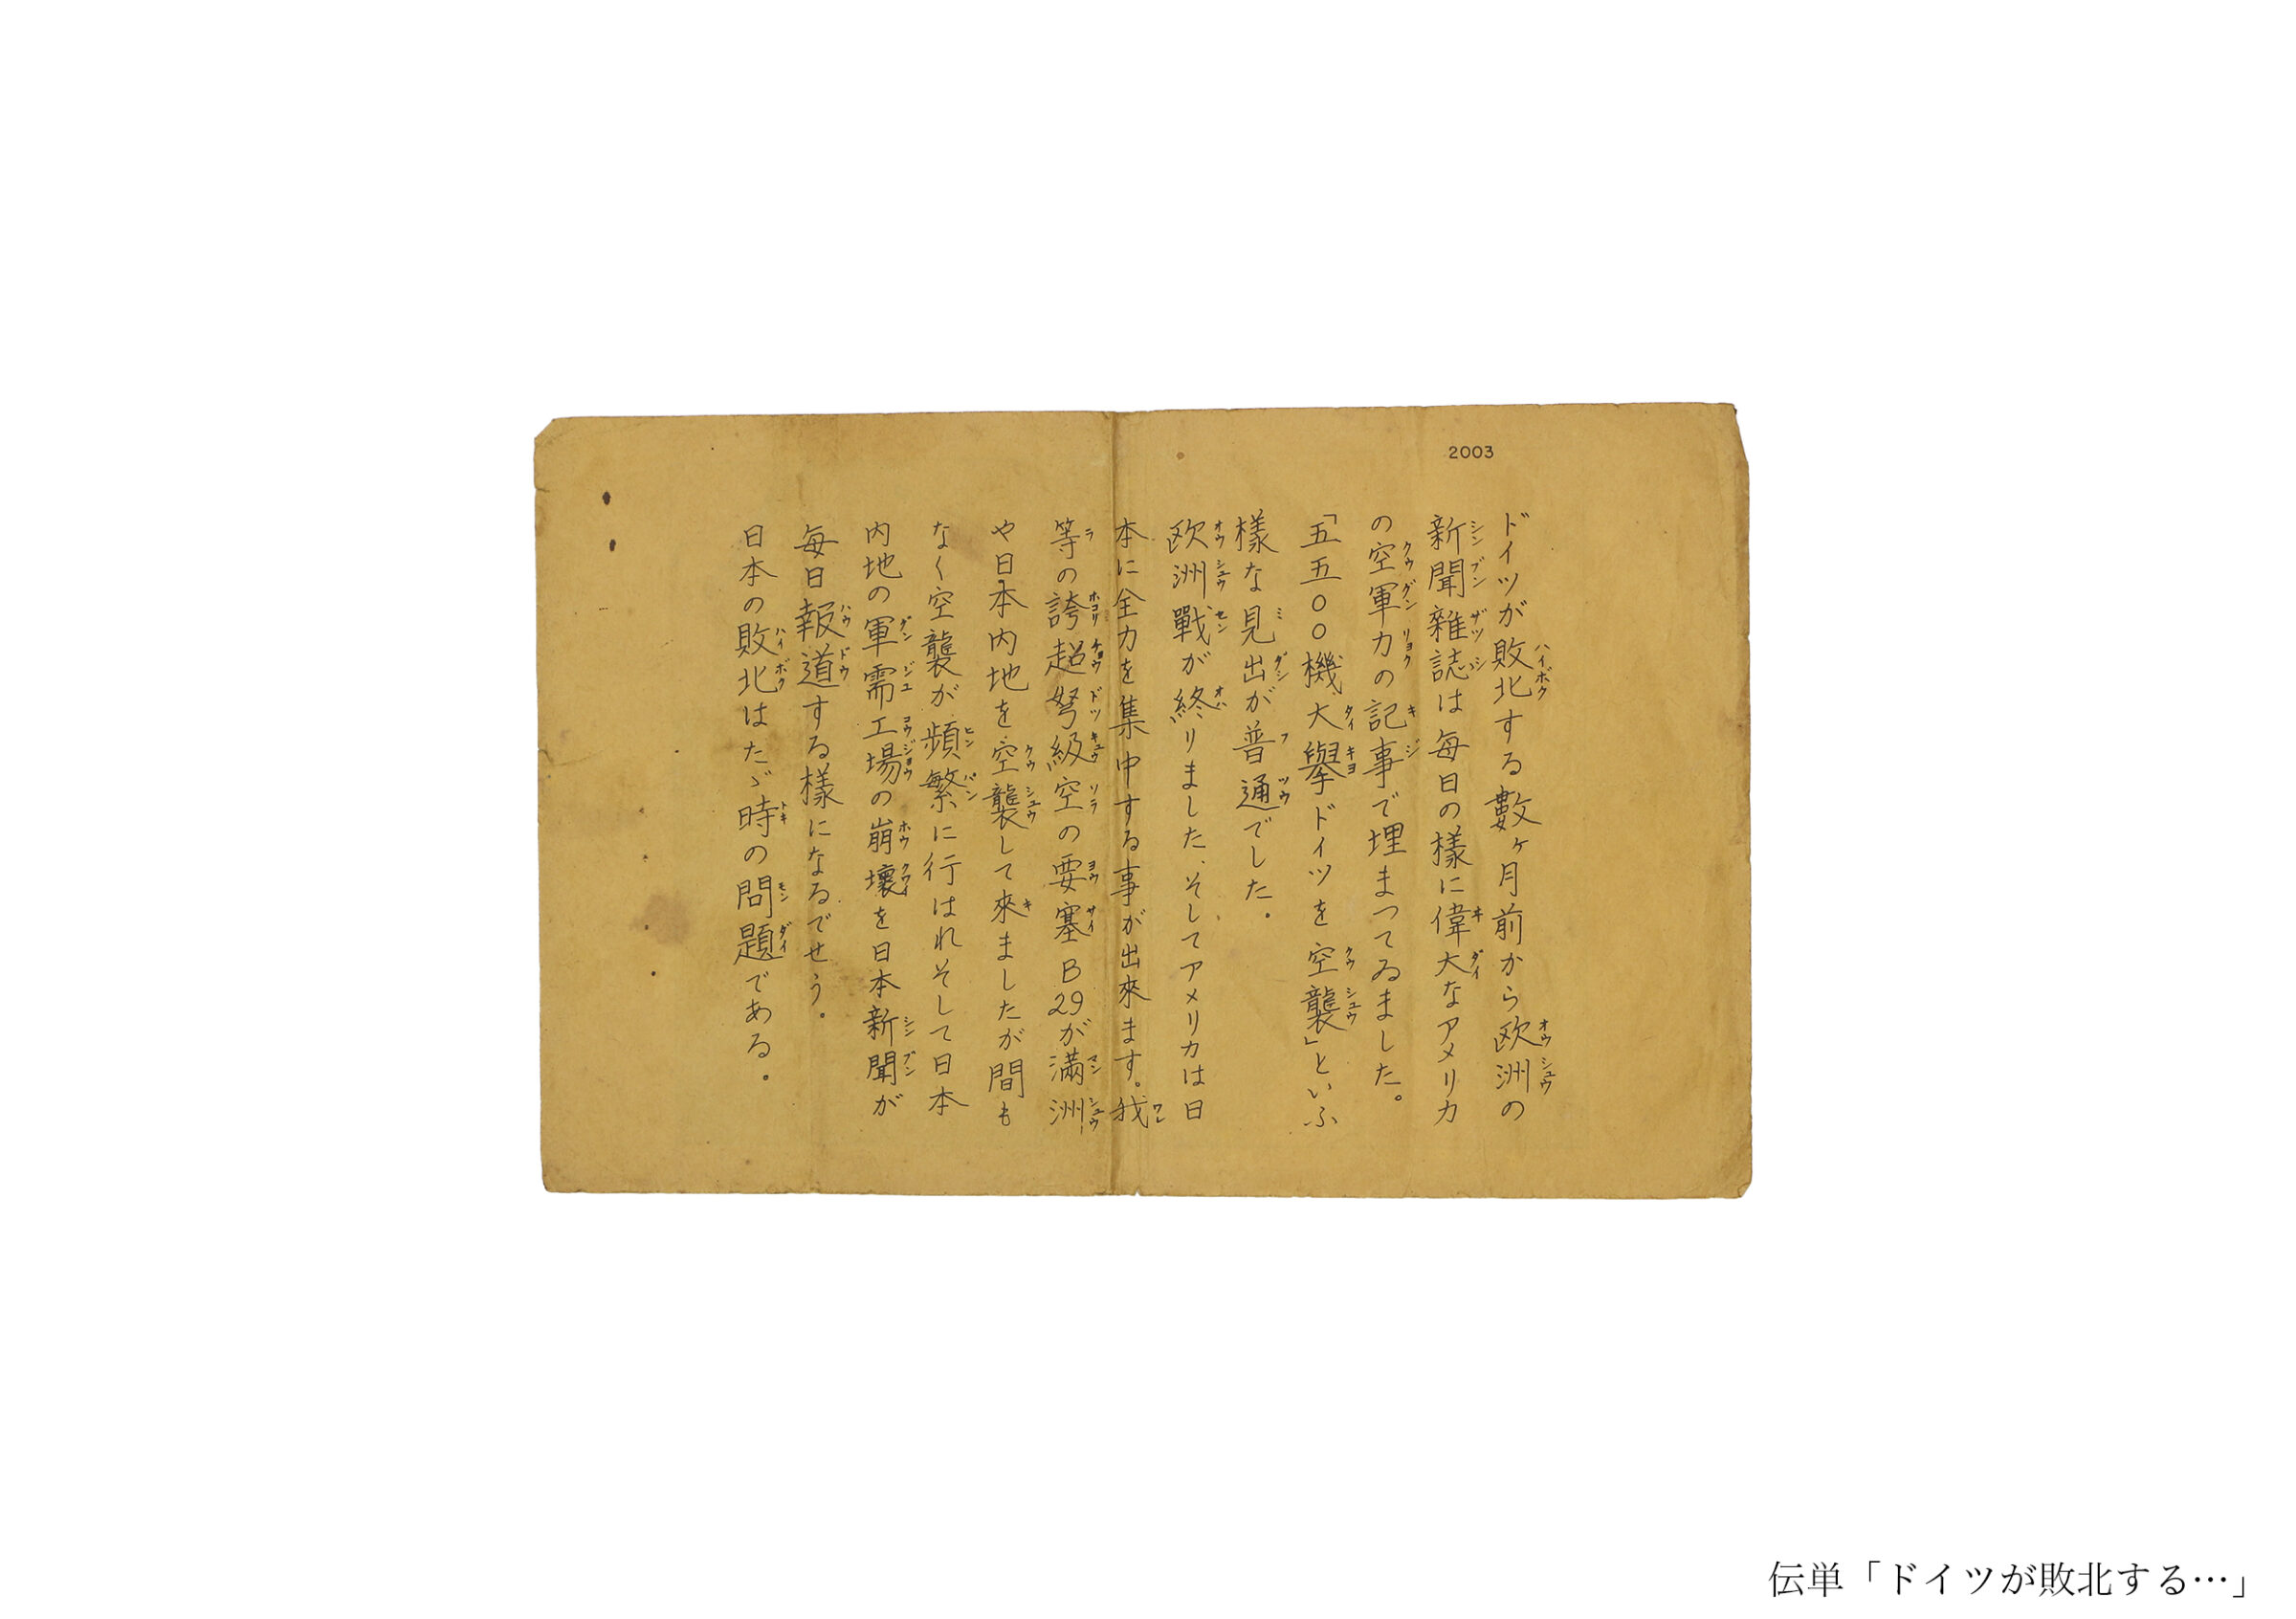 2003
ドイツが敗北する數ヶ月前から欧洲の
新聞雜誌は毎日の様に偉大なアメリカ
の空軍力の記事で埋まつてゐました。
「五五〇〇機大擧ドイツを空襲」といふ
様な見出が普通でした。
欧洲戰が終りました、そしてアメリカは日
本に全力を集中する事が出來ます。我
等の誇超弩級空の要塞B29が満洲
や日本内地を空襲して來ましたが間も
なく空襲が頻繁に行はれそして日本
内地の軍需工場の崩壞を日本新聞が
毎日報道する様になるでせう。
日本の敗北はたゞ時の問題である。
伝単「ドイツが敗北する…」